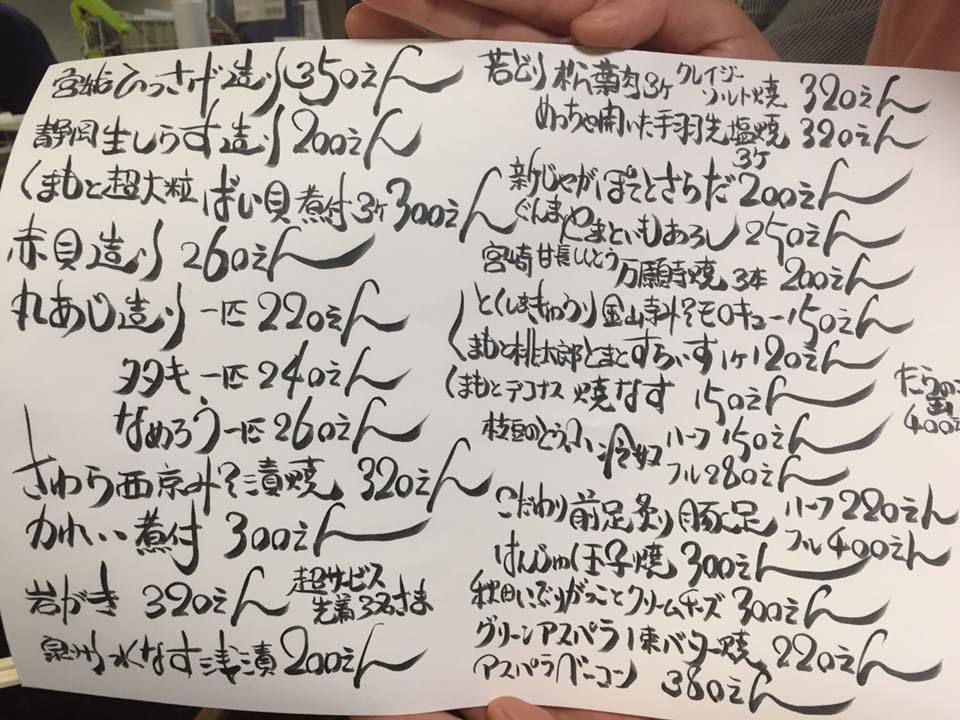 宮崎ひっさげ造り350えん
静岡生しらす造り200えん
くまもと超大粒ばい貝煮付3ケ300えん
赤貝造り260えん
丸あじ造り一匹220えん
タタキ一匹240えん
なめろう一匹260えん
さわら西京みそ漬焼320えん
かれい煮付300えん
岩がき320えん 超サービス
先着3名さま
水なす浅漬200えん
若どり 松葉肉3ケ クレイジー
ソルト焼 320えん
めっちゃ開いた手羽先塩焼 320えん
3ケ
新じゃがぽてとさらだ200えん
ぐんまやまといもおろし250えん
宮崎甘長とう 万願寺焼3本200えん
とくしまきゅうり金山寺みそモロキュー150えん
くまもと桃太郎とまとすらいす1ケ120えん
くまもとデコナス焼なす 150えん
枝豆のとうふ 冷奴 ハーフ150えん
フル280えん
こだわり前足炙り豚足 ハーフ220えん
フル400えん
はんじゅく玉子焼300えん
秋田いぶりがっことクリームチーズ300えん
グリーンアスパラ1束バター焼220えん
アスパラベーコン 380えん
たらの
400